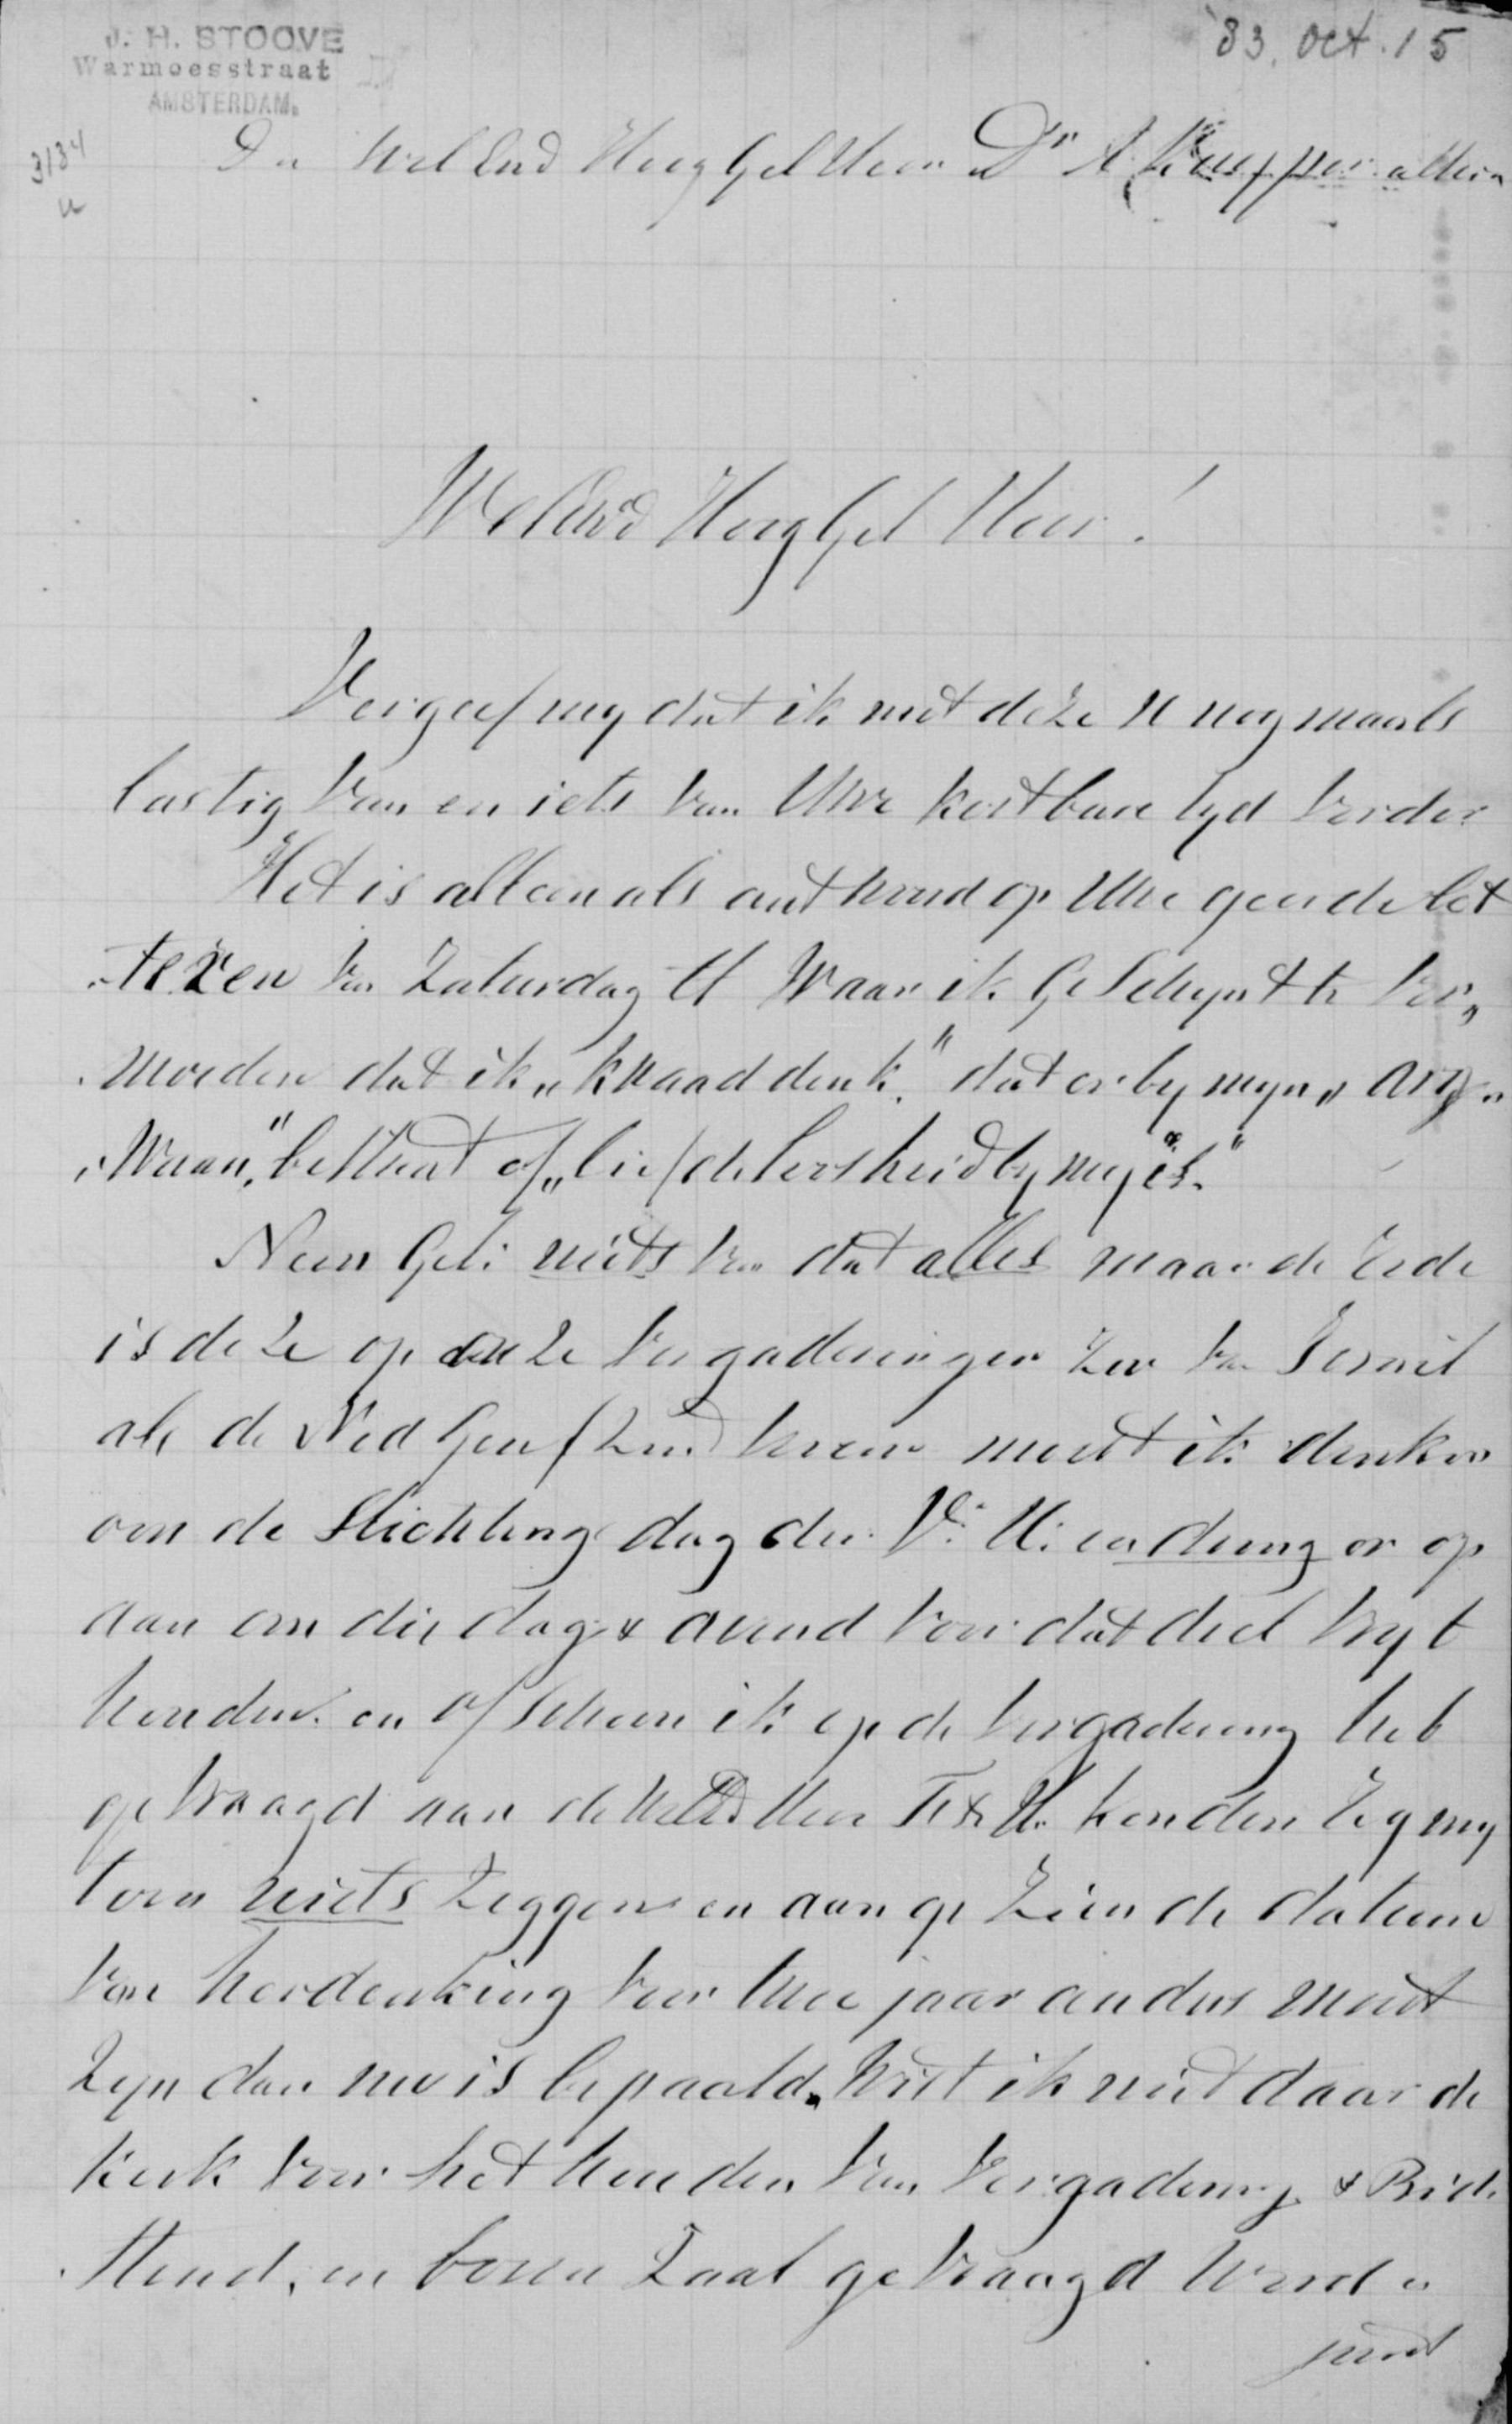 J. H. STOOVE
Warmoesstraat
AMSTERDAM.
'83. Oct. 15
3134
Wel Eerd Hoog Gel Heer Dr A Kuyper alhier
WelEerd Hoog Gel Heer!
Vergeef my dat ik met deze U nogmaals
lastig van en iets van Uwe kostbare tyd vorder
Het is alleen als antwoord op Uwe geerde let
teren van Zaturdag ll Waar ik Gel schynt te ver„
moeden dat ik „kwaad denk." dat er by myn „arg„
„Waan," bestaat of „liefdeloosheid by my is."
Neen Gel: niets van dat alles maar de rede
is deze op onze vergaderingen zoo van Israel
als de Ned Geref Zend moet ik denken
om de Stichting dag der V. U. en dring er op
aan om die dag & avond voor dat doel vry t
houden. en ofschoon ik op de vergadering heb
gevraagd aan de Heer F & H. konden zy my
toen niets zeggen en aan ge zien de datum
van herdenking voor Uwe jaar anders moet
zyn dan nu is bepaald. Wist ik niet daar de
kerk voor het houden van vergadering & Bid
stond, en boven Zaal gevraagd werd